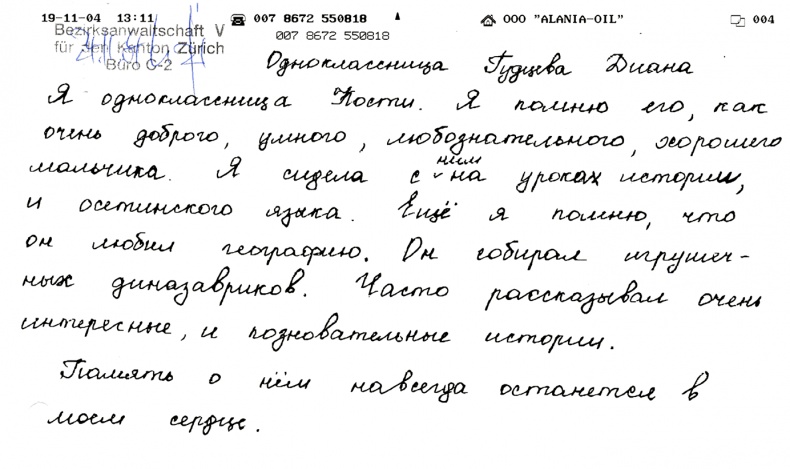 19-11-04 13:11 007 8672 550818 ООО "ALANIA-OIL" 004
Bezirksanwaltschaft V 007 8672 550818
für den Kanton Zürich
Büro C-2
Одноклассница Гудцева Диана
Я одноклассница Кости. Я помню его, как
очень доброго, умного, любознательного, хорошего
мальчика. Я сидела с ним на уроках истории,
и осетинского языка. Ещё я помню, что
он любил географию. Он собирал игрушеч-
ных диназавриков. Часто рассказывал очень
интересные, и позновательные истории.
Память о нём навсегда останется в
моем сердце.